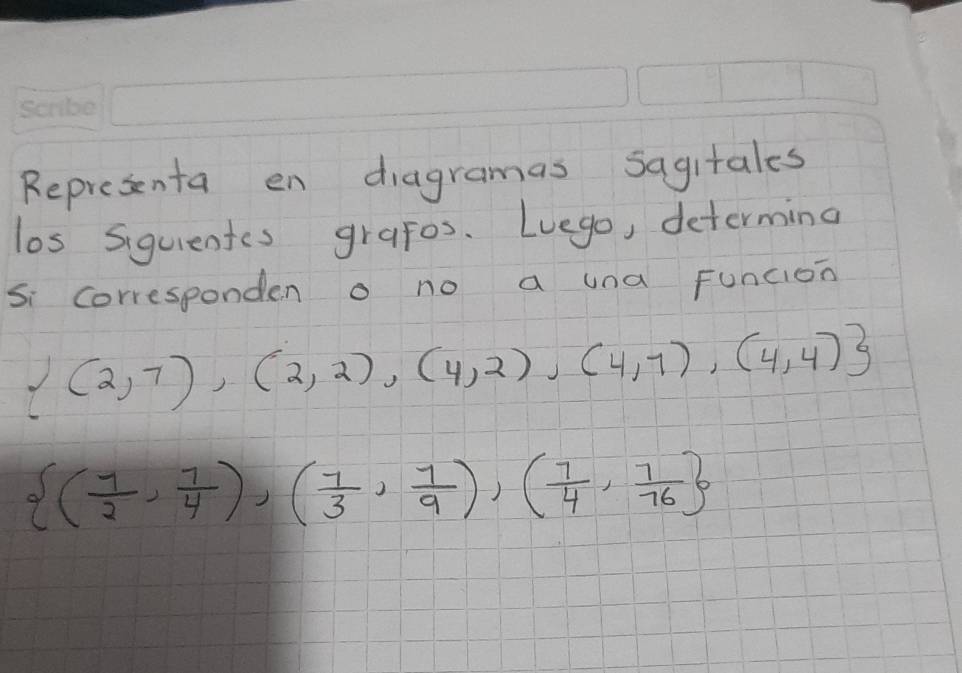 Scribe
Representa en diagramas sagitales
los siguientes grafos. Luego, determina
si corresponden o no a una Función
{(2,1), (2,2), (4,2), (4,1), (4,4)}
{(1/2, 1/4), (1/3, 1/9), (1/4, 1/16}